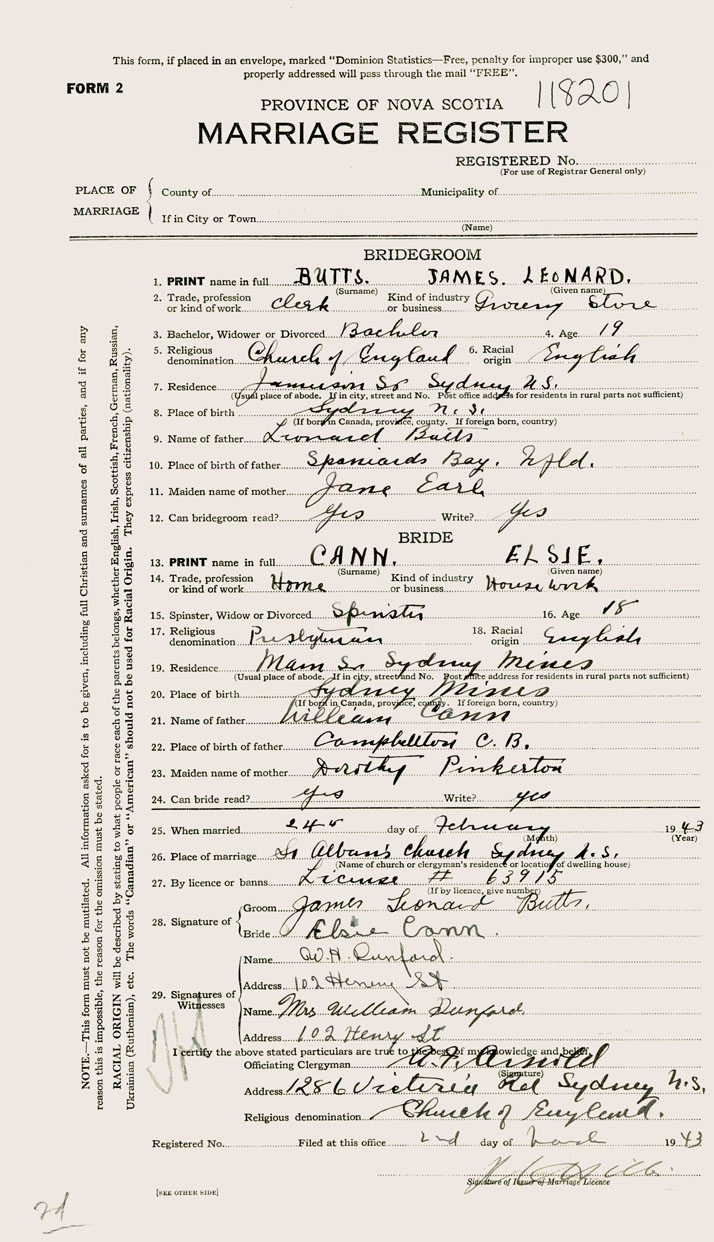 This form, if placed in an envelope, marked "Dominion Statistics—Free, penalty for improper use $300," and
properly addressed will pass through the mail "FREE".
FORM 2
118201
PROVINCE OF NOVA SCOTIA
MARRIAGE REGISTER
REGISTERED No.
(For use of Registrar General only)
PLACE OF MARRIAGE
County of Municipality of
If in City or Town
(Name)
BRIDEGROOM
1. PRINT name in full BUTTS. JAMES. LEONARD.
(Surname) (Given name)
2. Trade, profession or kind of work Clerk Kind of industry or business Grocery Store
3. Bachelor, Widower or Divorced Bachelor 4. Age 19
5. Religious denomination Church of England 6. Racial origin English
7. Residence Jamieson St Sydney N.S.
(Usual place of abode. If in city, street and No. Post office address for residents in rural parts not sufficient)
8. Place of birth Sydney N.S.
(If born in Canada, province, county. If foreign born, country)
9. Name of father Leonard Butts
10. Place of birth of father Spaniards Bay. Nfld.
11. Maiden name of mother Jane Earle
12. Can bridegroom read? Yes Write? Yes
BRIDE
13. PRINT name in full CANN. ELSIE.
(Surname) (Given name)
14. Trade, profession or kind of work Home Kind of industry or business Housework
15. Spinster, Widow or Divorced Spinster 16. Age 18
17. Religious denomination Presbyterian 18. Racial origin English
19. Residence Main St Sydney Mines
(Usual place of abode. If in city, street and No. Post office address for residents in rural parts not sufficient)
20. Place of birth Sydney Mines
(If born in Canada, province, county. If foreign born, country)
21. Name of father William Cann
22. Place of birth of father Campbellton C.B.
23. Maiden name of mother Dorothy Pinkerton
24. Can bride read? yes Write? yes
25. When married 24th day of February 1943
(Month) (Year)
26. Place of marriage St Alban's Church Sydney N.S.
(Name of church or clergyman's residence or location of dwelling house)
27. By licence or banns License # 63915
(If by licence, give number)
28. Signature of
Groom James Leonard Butts.
Bride Elsie Cann.
29. Signatures of Witnesses
Name W.H. Dunford.
Address 102 Henry St
Name Mrs William Dunford.
Address 102 Henry St
I certify the above stated particulars are true to the best of my knowledge and belief.
Officiating Clergyman A.F. Arnold
(Signature)
Address 1286 Victoria Rd Sydney N.S.
Religious denomination Church of England.
Registered No. Filed at this office 2nd day of March 1943
Signature of Issuer of Marriage Licence
[SEE OTHER SIDE]
2d
NOTE.—This form must not be mutilated. All information asked for is to be given, including full Christian and surnames of all parties, and if for any
reason this is impossible, the reason for the omission must be stated.
RACIAL ORIGIN will be described by stating to what people or race each of the parents belongs, whether English, Irish, Scottish, French, German, Russian,
Ukrainian (Ruthenian), etc. The words "Canadian" or "American" should not be used for Racial Origin. They express citizenship (nationality).